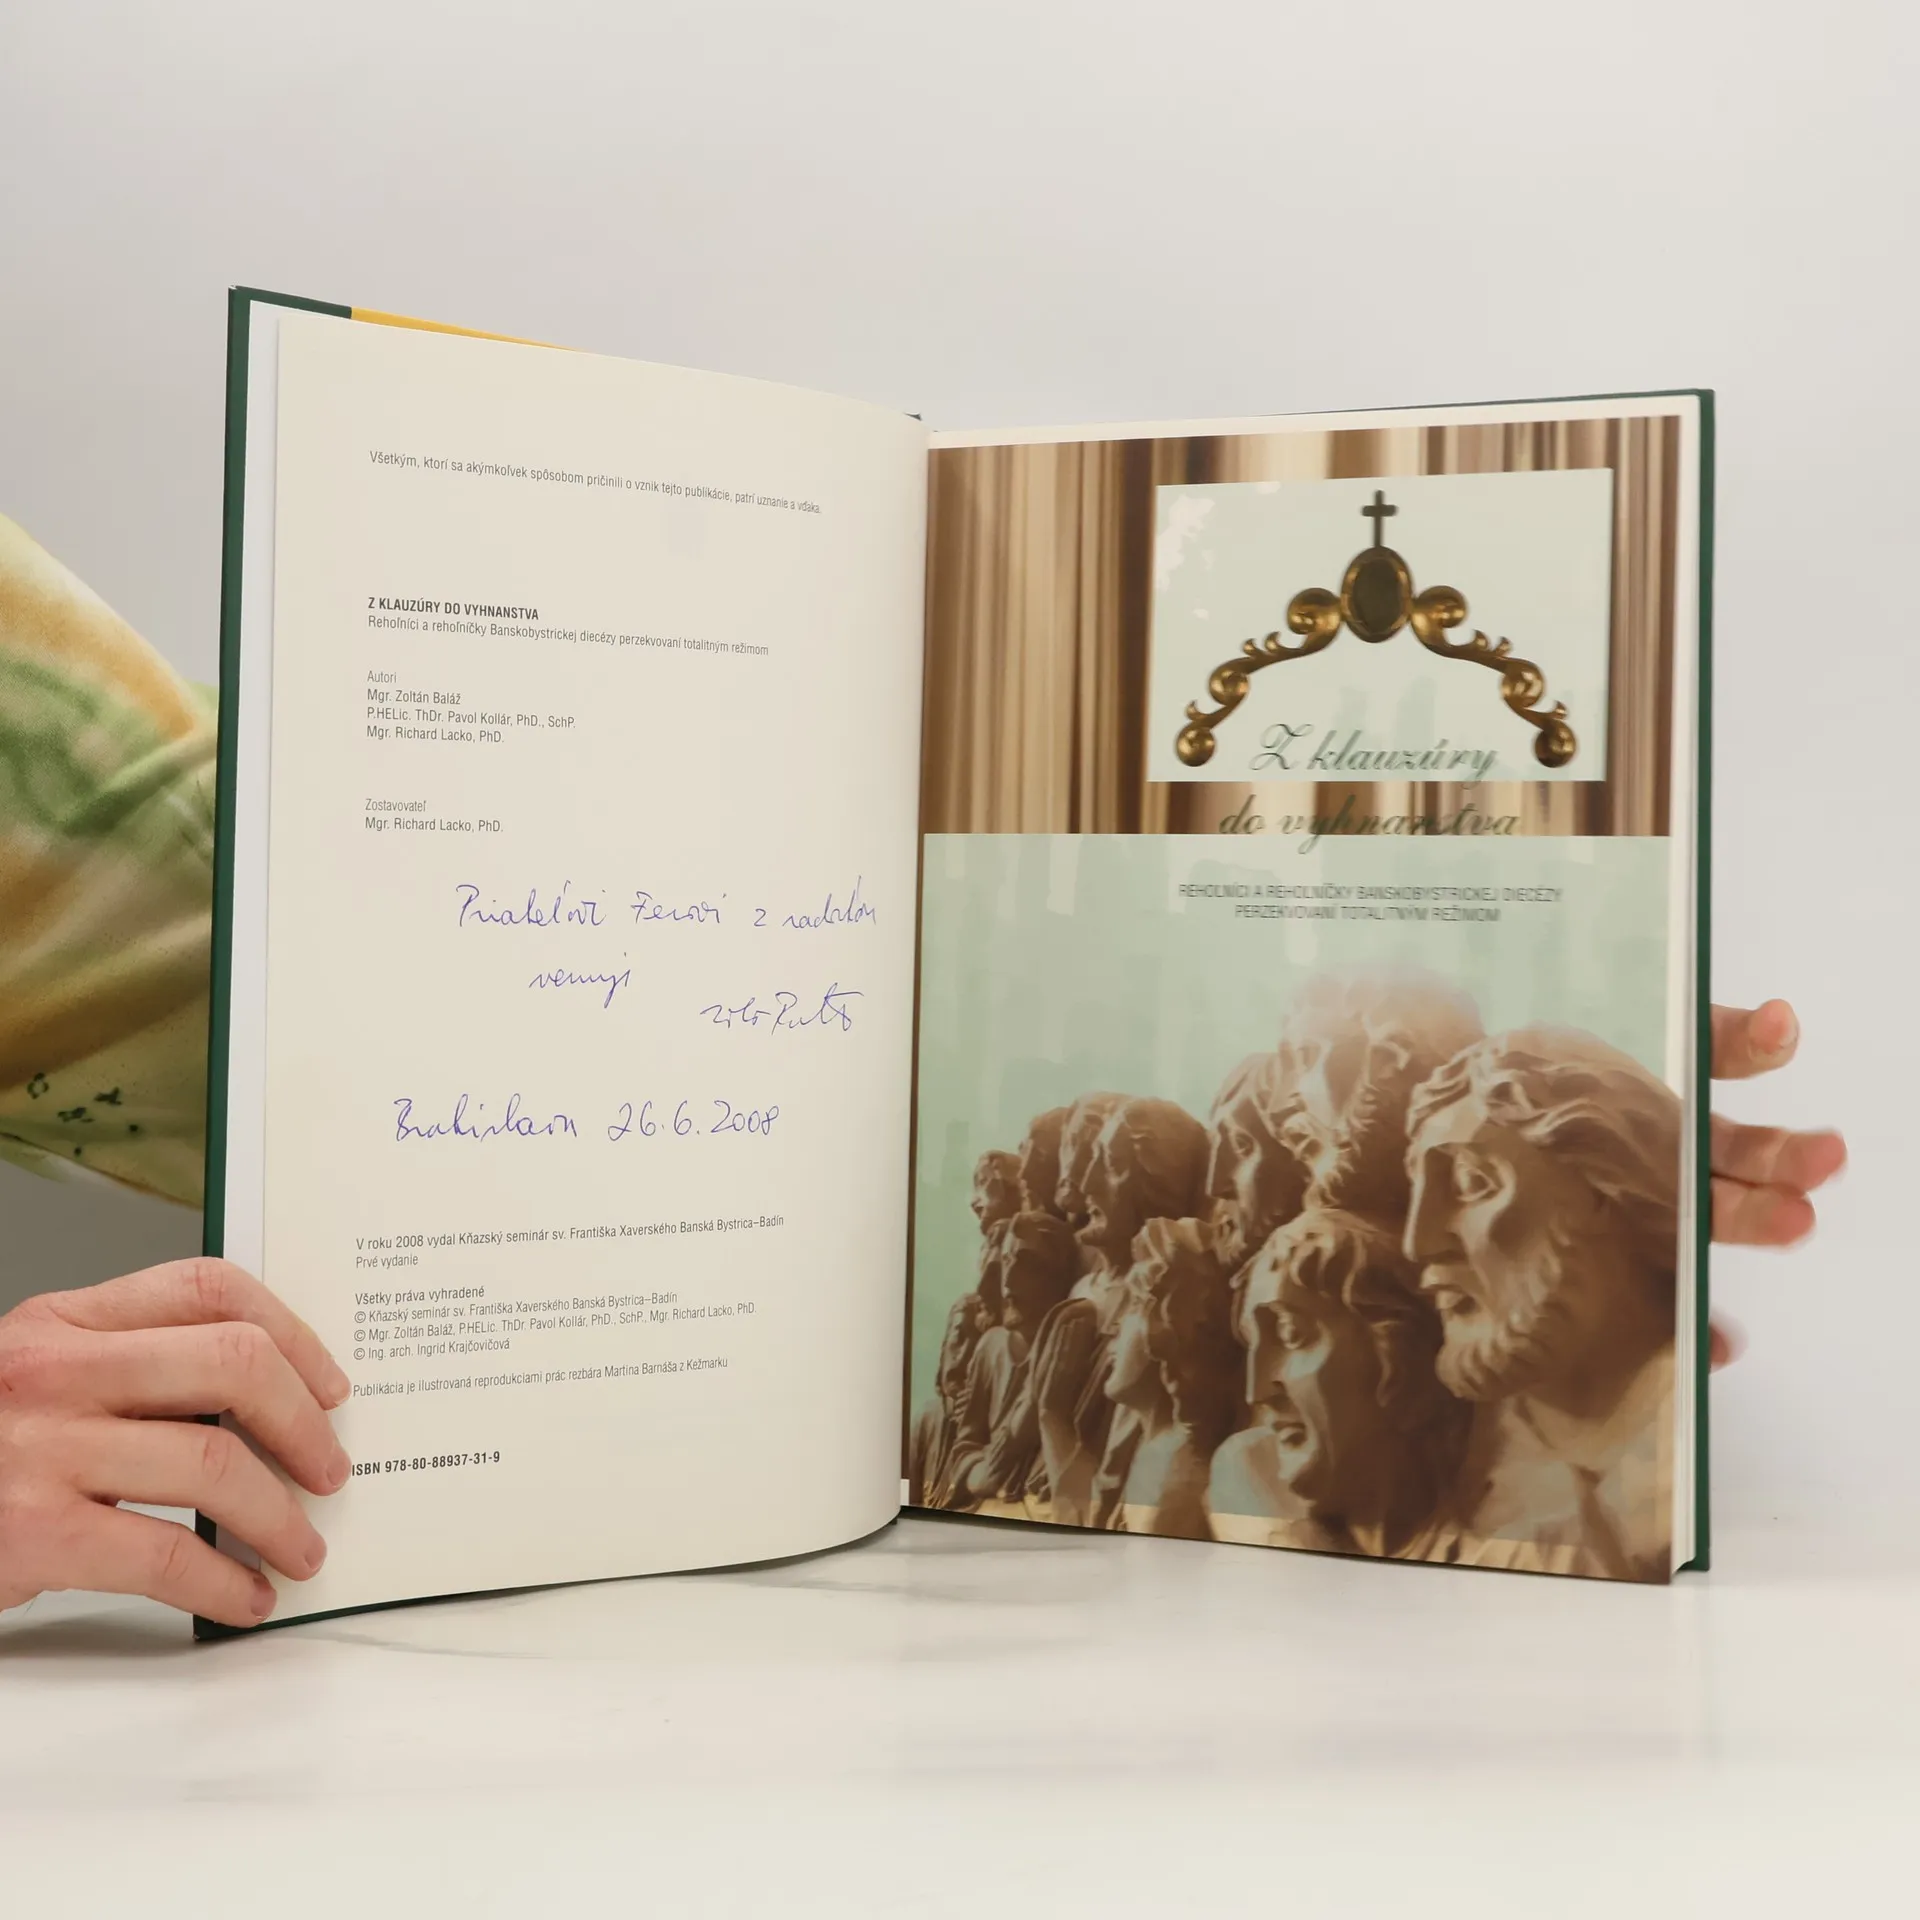 Všetkým, ktorí sa akýmkoľvek spôsobom pričinili o vznik tejto publikácie, patrí uznanie a vďaka.
Z KLAUZÚRY DO VYHNANSTVA
Rehoľníci a rehoľníčky Banskobystrickej diecézy perzekvovaní totalitným režimom
Autori
Mgr. Zoltán Baláž
P.HELic. ThDr. Pavol Kollár, PhD., SchP.
Mgr. Richard Lacko, PhD.
Zostavovateľ
Mgr. Richard Lacko, PhD.
Priateľovi Ferovi z
venuje
Bratislava 26.6.2008
V roku 2008 vydal Kňazský seminár sv. Františka Xaverského Banská Bystrica–Badín
Prvé vydanie
Všetky práva vyhradené
© Kňazský seminár sv. Františka Xaverského Banská Bystrica–Badín
© Mgr. Zoltán Baláž, P.HELic. ThDr. Pavol Kollár, PhD., SchP., Mgr. Richard Lacko, PhD.
© Ing. arch. Ingrid Krajčovičová
Publikácia je ilustrovaná reprodukciami prác rezbára Martina Barnáša z Kežmarku
ISBN 978-80-88937-31-9
Z klauzúry
do vyhnanstva
REHOĽNÍCI A REHOĽNÍČKY BANSKOBYSTRICKEJ DIECÉZY
PERZEKVOVANÍ TOTALITNÝM REŽIMOM